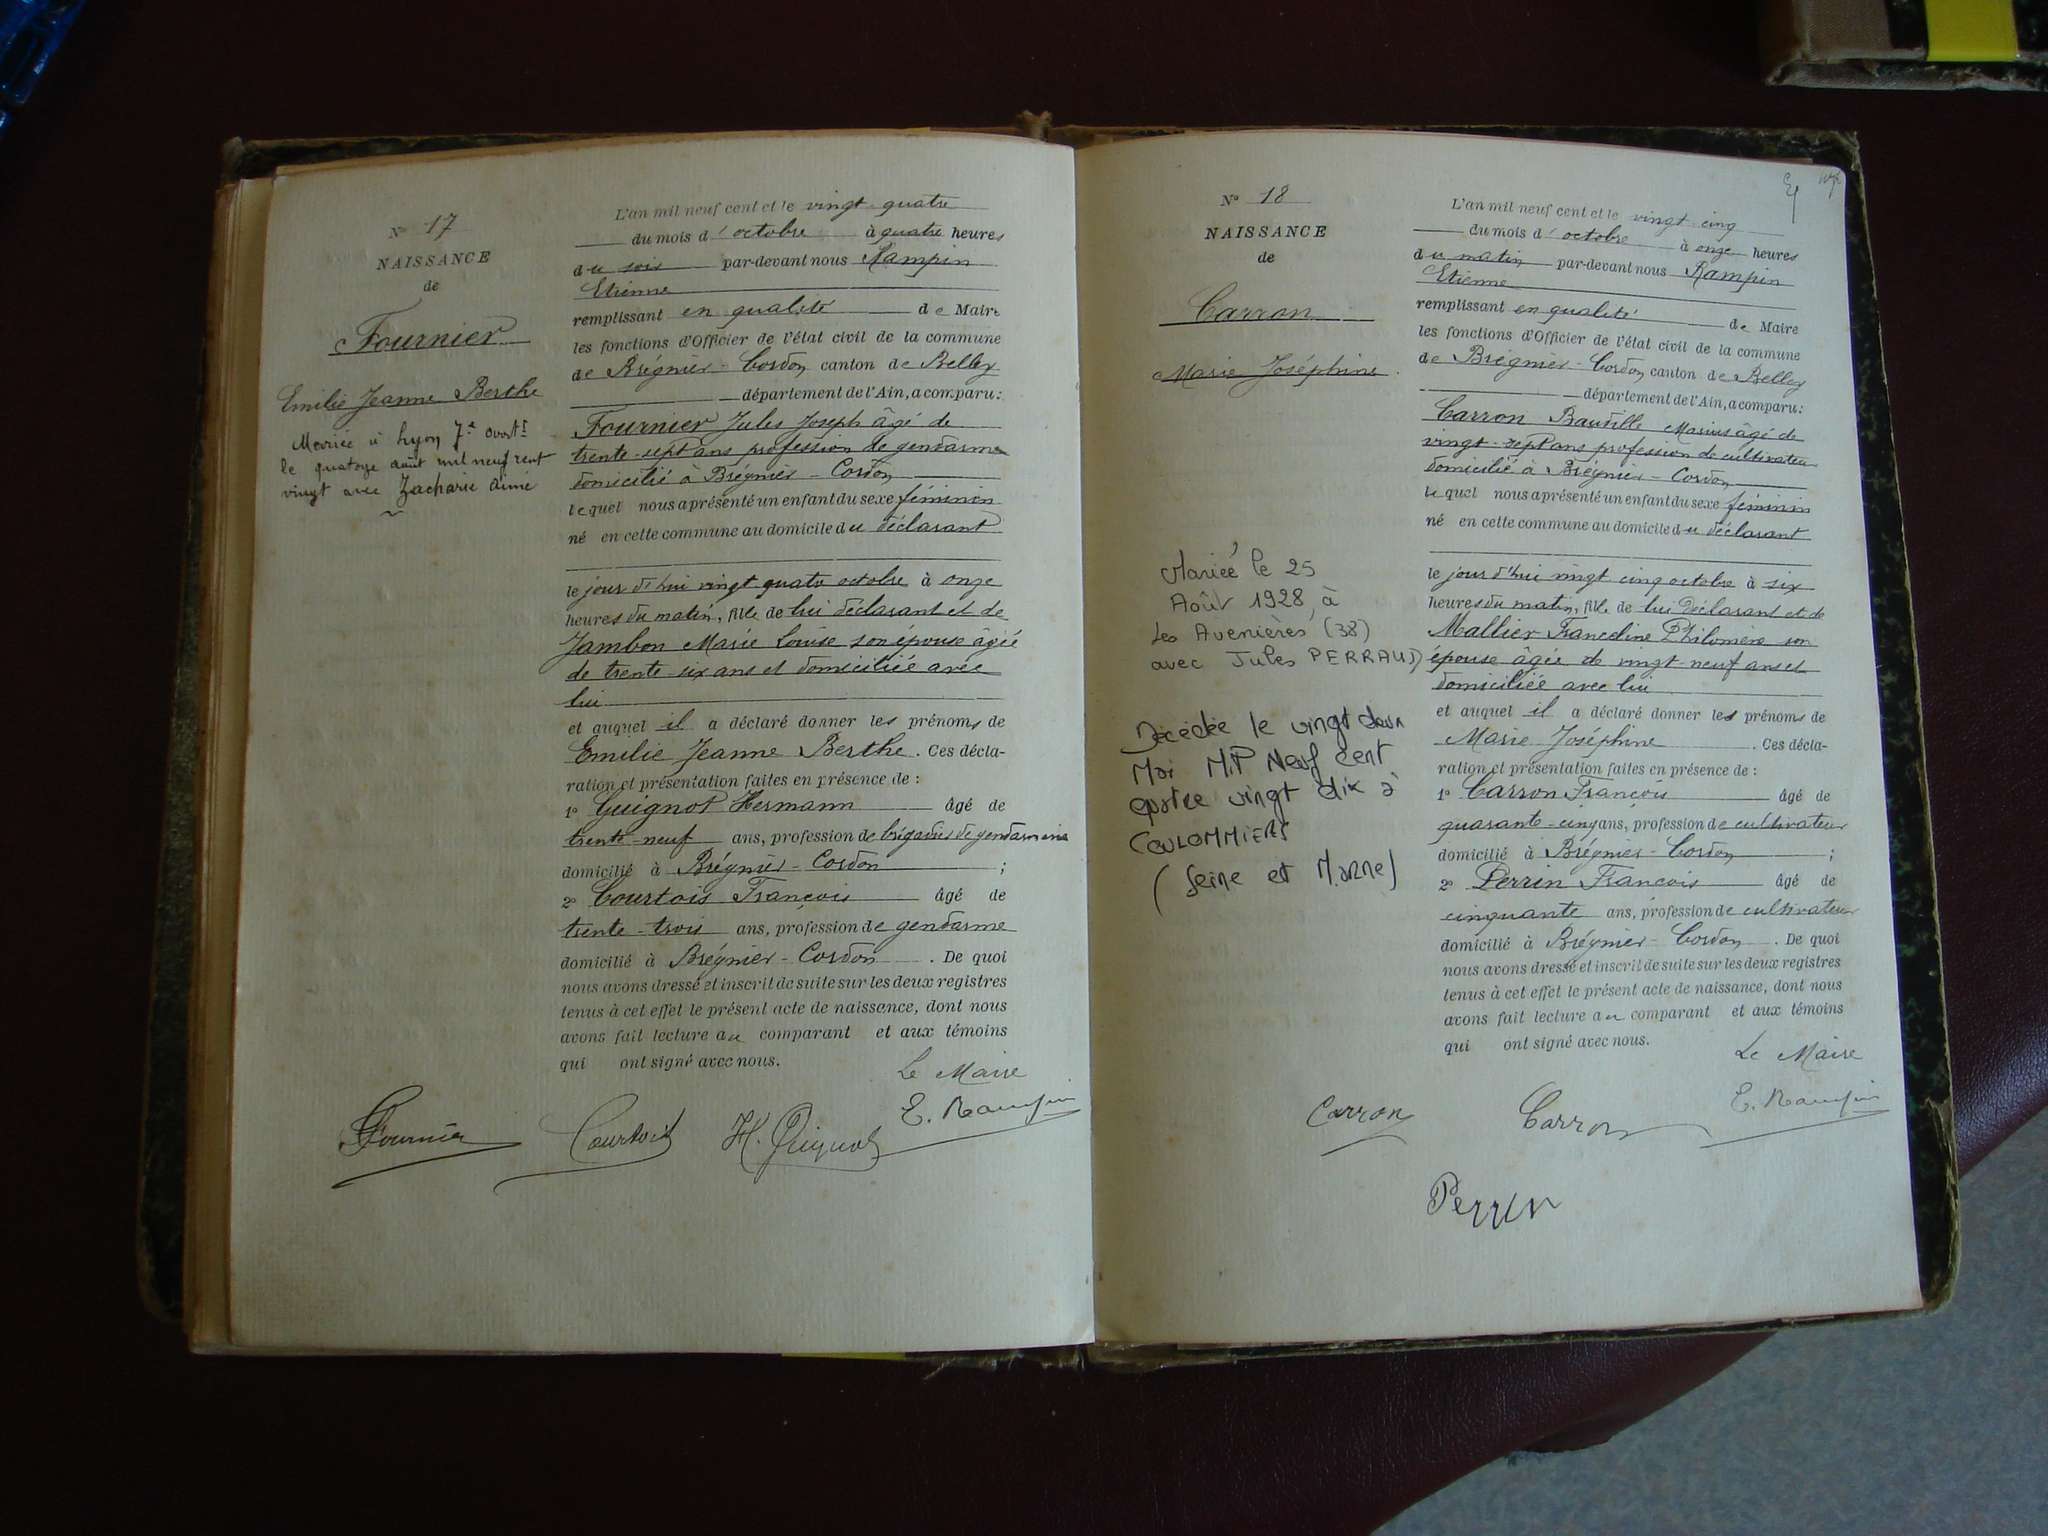 N° 17
NAISSANCE
de
Fournier
Emilie Jeanne Berthe
Mariée à Lyon 7e arrdt
le quatorze août mil neuf cent
vingt avec Zacharie aimé
L'an mil neuf cent et le vingt-quatre
du mois d'octobre à quatre heures
du soir par-devant nous Rampin
Etienne
remplissant en qualité de Maire
les fonctions d'Officier de l'état civil de la commune
de Brégnier-Cordon canton de Belley
département de l'Ain, a comparu:
Fournier Jules Joseph âgé de
trente-sept ans profession de gendarme
domicilié à Brégnier-Cordon
lequel nous a présenté un enfant du sexe féminin
né en cette commune au domicile du déclarant
le jour d'hui vingt quatre octobre à onze
heures du matin, fille de lui déclarant et de
Jambon Marie Louise son épouse âgée
de trente-six ans et domiciliée avec
lui
et auquel il a déclaré donner les prénoms de
Emilie Jeanne Berthe. Ces décla-
ration et présentation faites en présence de :
1° Guignot Hermann âgé de
trente-neuf ans, profession de brigadier de gendarmerie
domicilié à Brégnier-Cordon ;
2° Courtois François âgé de
trente-trois ans, profession de gendarme
domicilié à Brégnier-Cordon. De quoi
nous avons dressé et inscrit de suite sur les deux registres
tenus à cet effet le présent acte de naissance, dont nous
avons fait lecture au comparant et aux témoins
qui ont signé avec nous.
Le Maire
Fournier Courtois H. Guignot E. Rampin
N° 18
NAISSANCE
de
Carron
Marie Joséphine
Mariée le 25
Août 1928, à
Les Avenières (38)
avec Jules PERRAUD
Décédée le vingt deux
Mai Mil Neuf cent
quatre vingt dix à
COULOMMIERS
(Seine et Marne)
L'an mil neuf cent et le vingt-cinq
du mois d'octobre à onze heures
du matin par-devant nous Rampin
Etienne
remplissant en qualité de Maire
les fonctions d'Officier de l'état civil de la commune
de Brégnier-Cordon canton de Belley
département de l'Ain, a comparu:
Carron Baudille Marius âgé de
vingt-sept ans profession de cultivateur
domicilié à Brégnier-Cordon
lequel nous a présenté un enfant du sexe féminin
né en cette commune au domicile du déclarant
le jour d'hui vingt cinq octobre à six
heures du matin, fille de lui déclarant et de
Mallier Franceline Philomène son
épouse âgée de vingt-neuf ans et
domiciliée avec lui
et auquel il a déclaré donner les prénoms de
Marie Joséphine. Ces décla-
ration et présentation faites en présence de :
1° Carron François âgé de
quarante-cinq ans, profession de cultivateur
domicilié à Brégnier-Cordon ;
2° Perrin François âgé de
cinquante ans, profession de cultivateur
domicilié à Brégnier-Cordon. De quoi
nous avons dressé et inscrit de suite sur les deux registres
tenus à cet effet le présent acte de naissance, dont nous
avons fait lecture au comparant et aux témoins
qui ont signé avec nous.
Le Maire
Carron Carron E. Rampin
Perrin